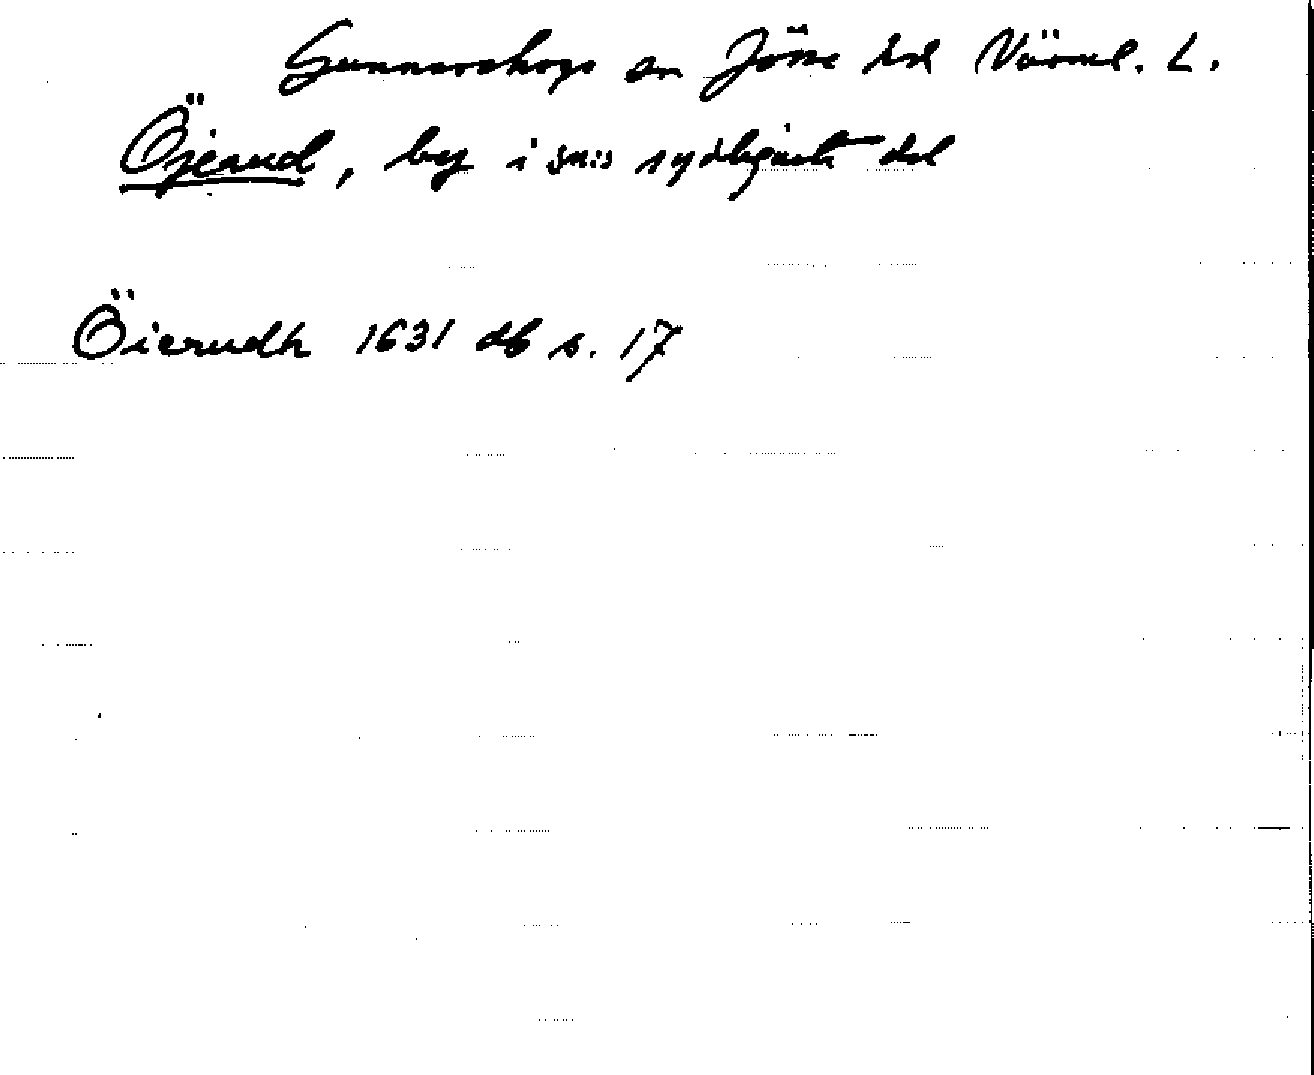 Gunnarskogs sn Jösse hd Värml. L.
Öjerud, by i sn:s sydligaste del
Öierudh 1631 db s. 17